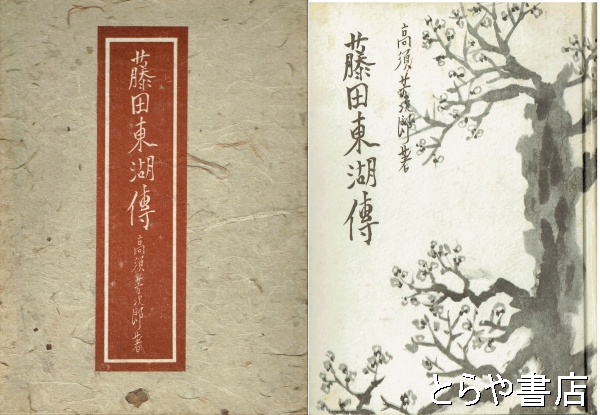 藤田東湖傳
高須芳次郎著
高須芳次郎著
藤田東湖傳
とらや書店